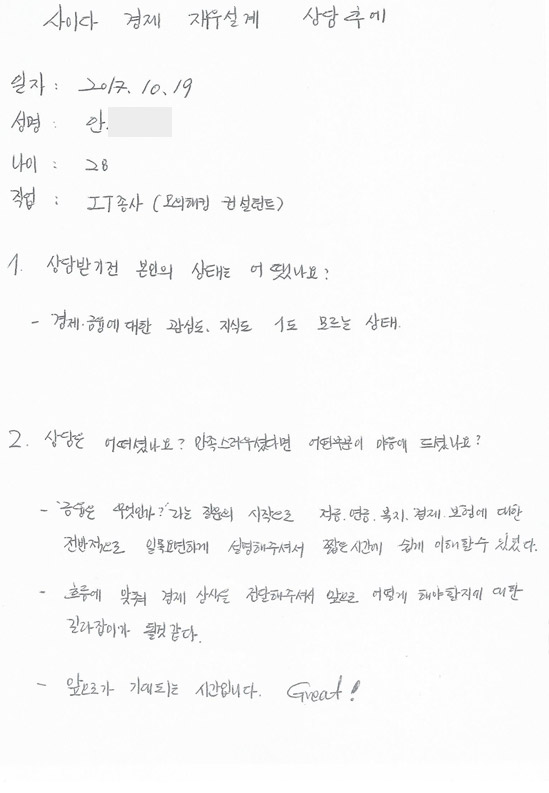 사이다 경제 재무설계 상담 후에
일자 : 2017. 10. 19
성명 : 안.
나이 : 28
직업 : IT종사 (모의해킹 컨설턴트)
1. 상담받기전 본인의 상태는 어땠나요?
- 경제·금융에 대한 관심도, 지식도 1도 모르는 상태.
2. 상담은 어떠셨나요? 만족스러우셨다면 어떤부분이 마음에 드셨나요?
- "금융은 무엇인가?"라는 질문의 시작으로 적금. 연금. 복지. 경제. 보험에 대한
전반적으로 일목요연하게 설명해주셔서 짧은시간에 쉽게 이해할수 있었다.
- 흐름에 맞춰 경제 상식을 전달해주셔서 앞으로 어떻게 해야할지에 대한
길라잡이가 될것 같다.
- 앞으로가 기대되는 시간입니다. Great!